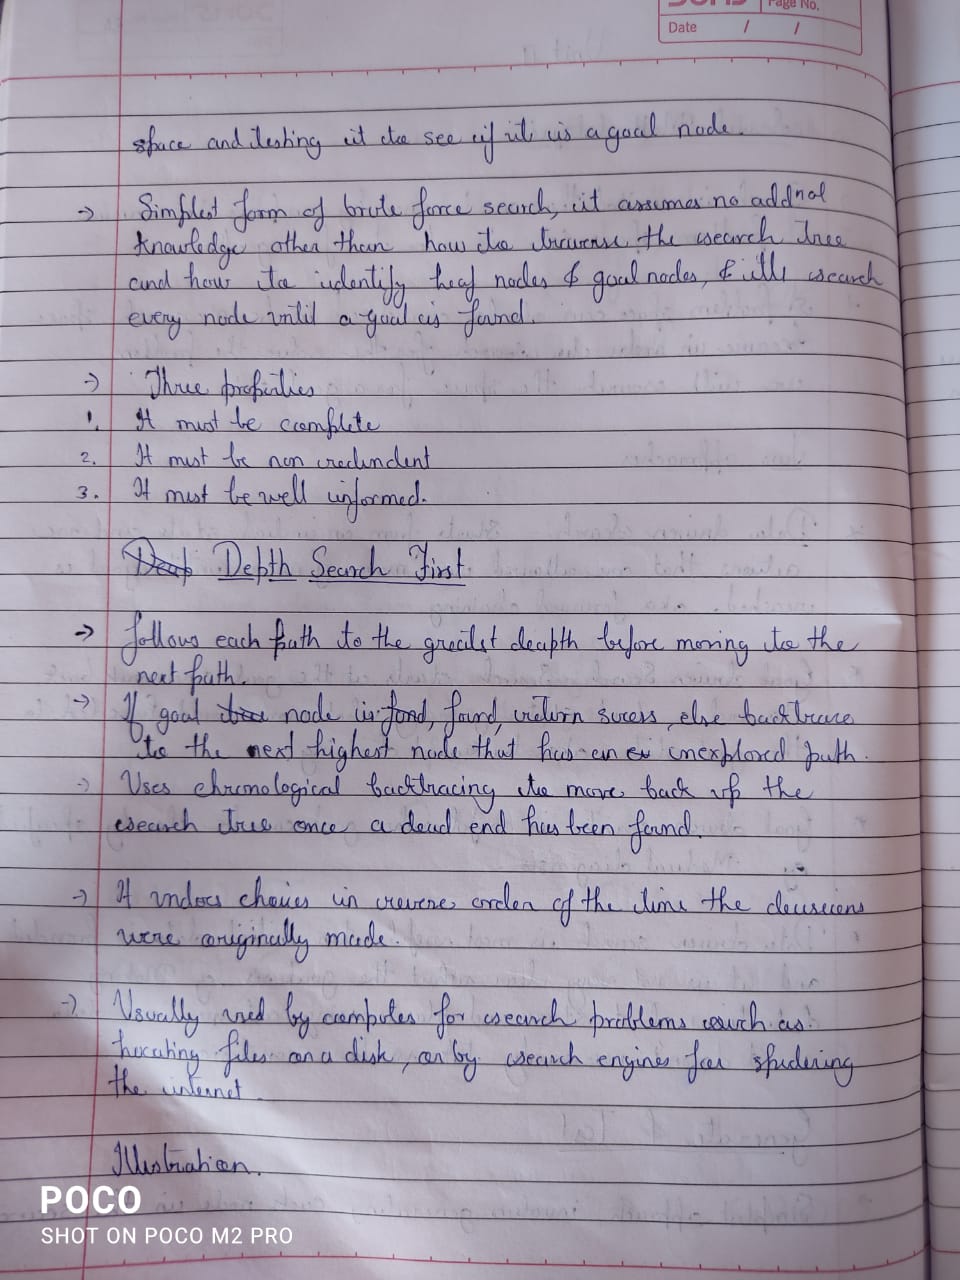 Page No.
Date / /
space and testing it to see if it is a goal node.
→ Simplest form of brute force search, it assumes no addnal
knowledge other than how to traverse the search tree
and how to identify leaf nodes & goal nodes, & itll search
every node until a goal is found.
→ Three properties
1. It must be complete
2. It must be non redundent
3. It must be well informed.
Depth Search First
→ follows each path to the greatest deapth before moving to the
next path.
→ If goal node is found, return sucess, else backtrace
to the next highest node that has an unexplored path.
→ Uses chronological backtracing to move back up the
search tree once a dead end has been found.
→ It undoes choices in reverse order of the time the decisions
were originally made.
→ Usually used by computes for search problems such as
locating files on a disk, or by search engines for spidering
the internet.
Illustration.
POCO
SHOT ON POCO M2 PRO